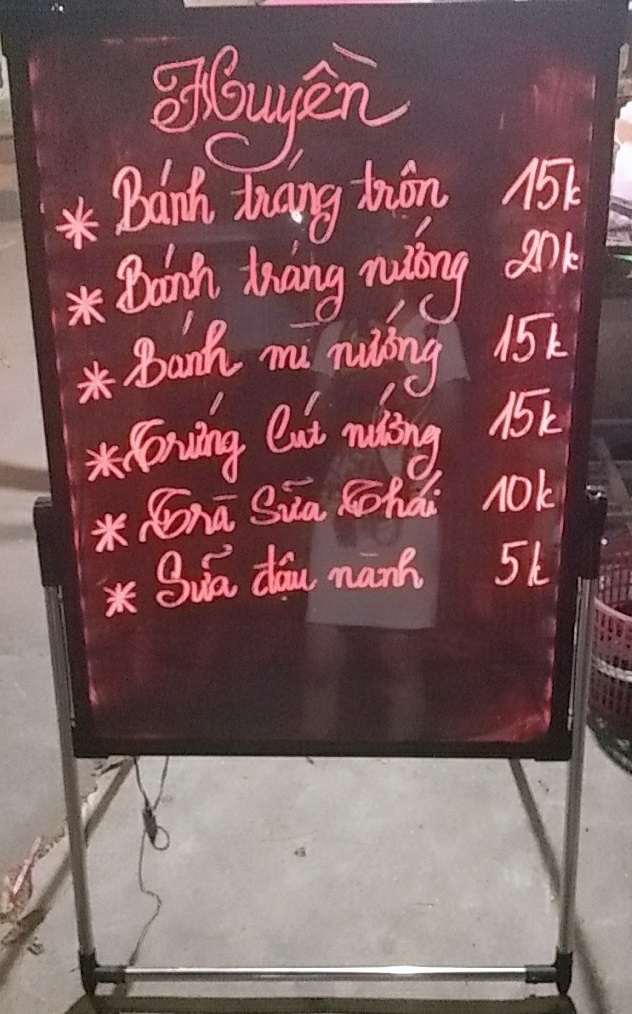 Huyền
* Bánh tráng trộn 15k
* Bánh tráng nướng 20k
* Bánh mì nướng 15k
* Trứng Cút nướng 15k
* Trà Sữa Thái 10k
* Sữa đậu nành 5k